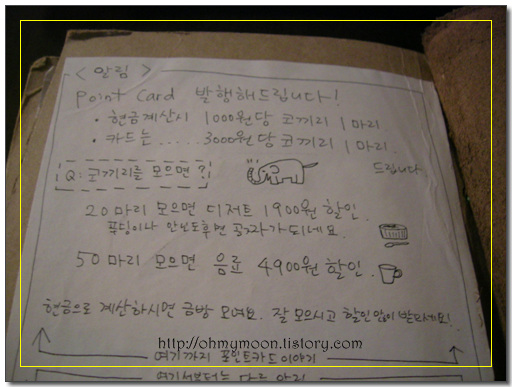 < 알림 >
Point Card 발행해드립니다!
• 현금계산시 1000원당 코끼리 1마리
• 카드는 ...... 3000원당 코끼리 1마리
드립니다.
Q: 코끼리를 모으면?
20마리 모으면 디저트 1900원 할인.
푸딩이나 안닌도후면 공짜가 되네요.
50마리 모으면 음료 4900원 할인.
현금으로 계산하시면 금방 모여요. 잘 모으시고 할인 많이 받으세요!
http://ohmymoon.tistory.com
여기까지 포인트카드 이야기